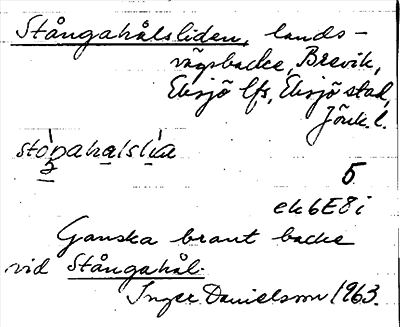 Stångahålsliden, lands-
vägsbacke, Brevik,
Eksjö lfs, Eksjö stad,
Jönk. l.
stoŋahalslia
5
ek6E8i
Ganska brant backe
vid Stångahål.
Inger Danielsson 1963.